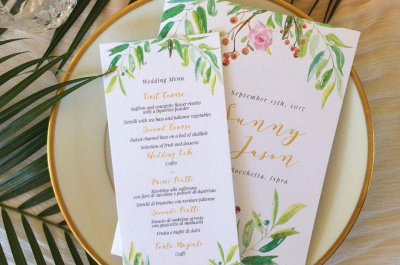 Wedding Menu
First Course
Saffron and courgette flower risotto
with a liquorice powder
Tortelli with sea bass and julienne vegetables
Second Course
Baked chanted bass on a bed of shellfish
Selection of fruit and desserts
Wedding Cake
Coffee
Primi Piatti
Risottino allo zafferano
con fiori di zucchine e polvere di liquirizia
Tortelli di branzino con verdure julienne
Secondo Piatto
Trancio di ombrina arrosto
con passata di crostacei
Frutta e buffet di dolci
Torta Nuziale
Caffè
September 15th, 2017
Sunny
& Jason
Rocchetta, Ispra